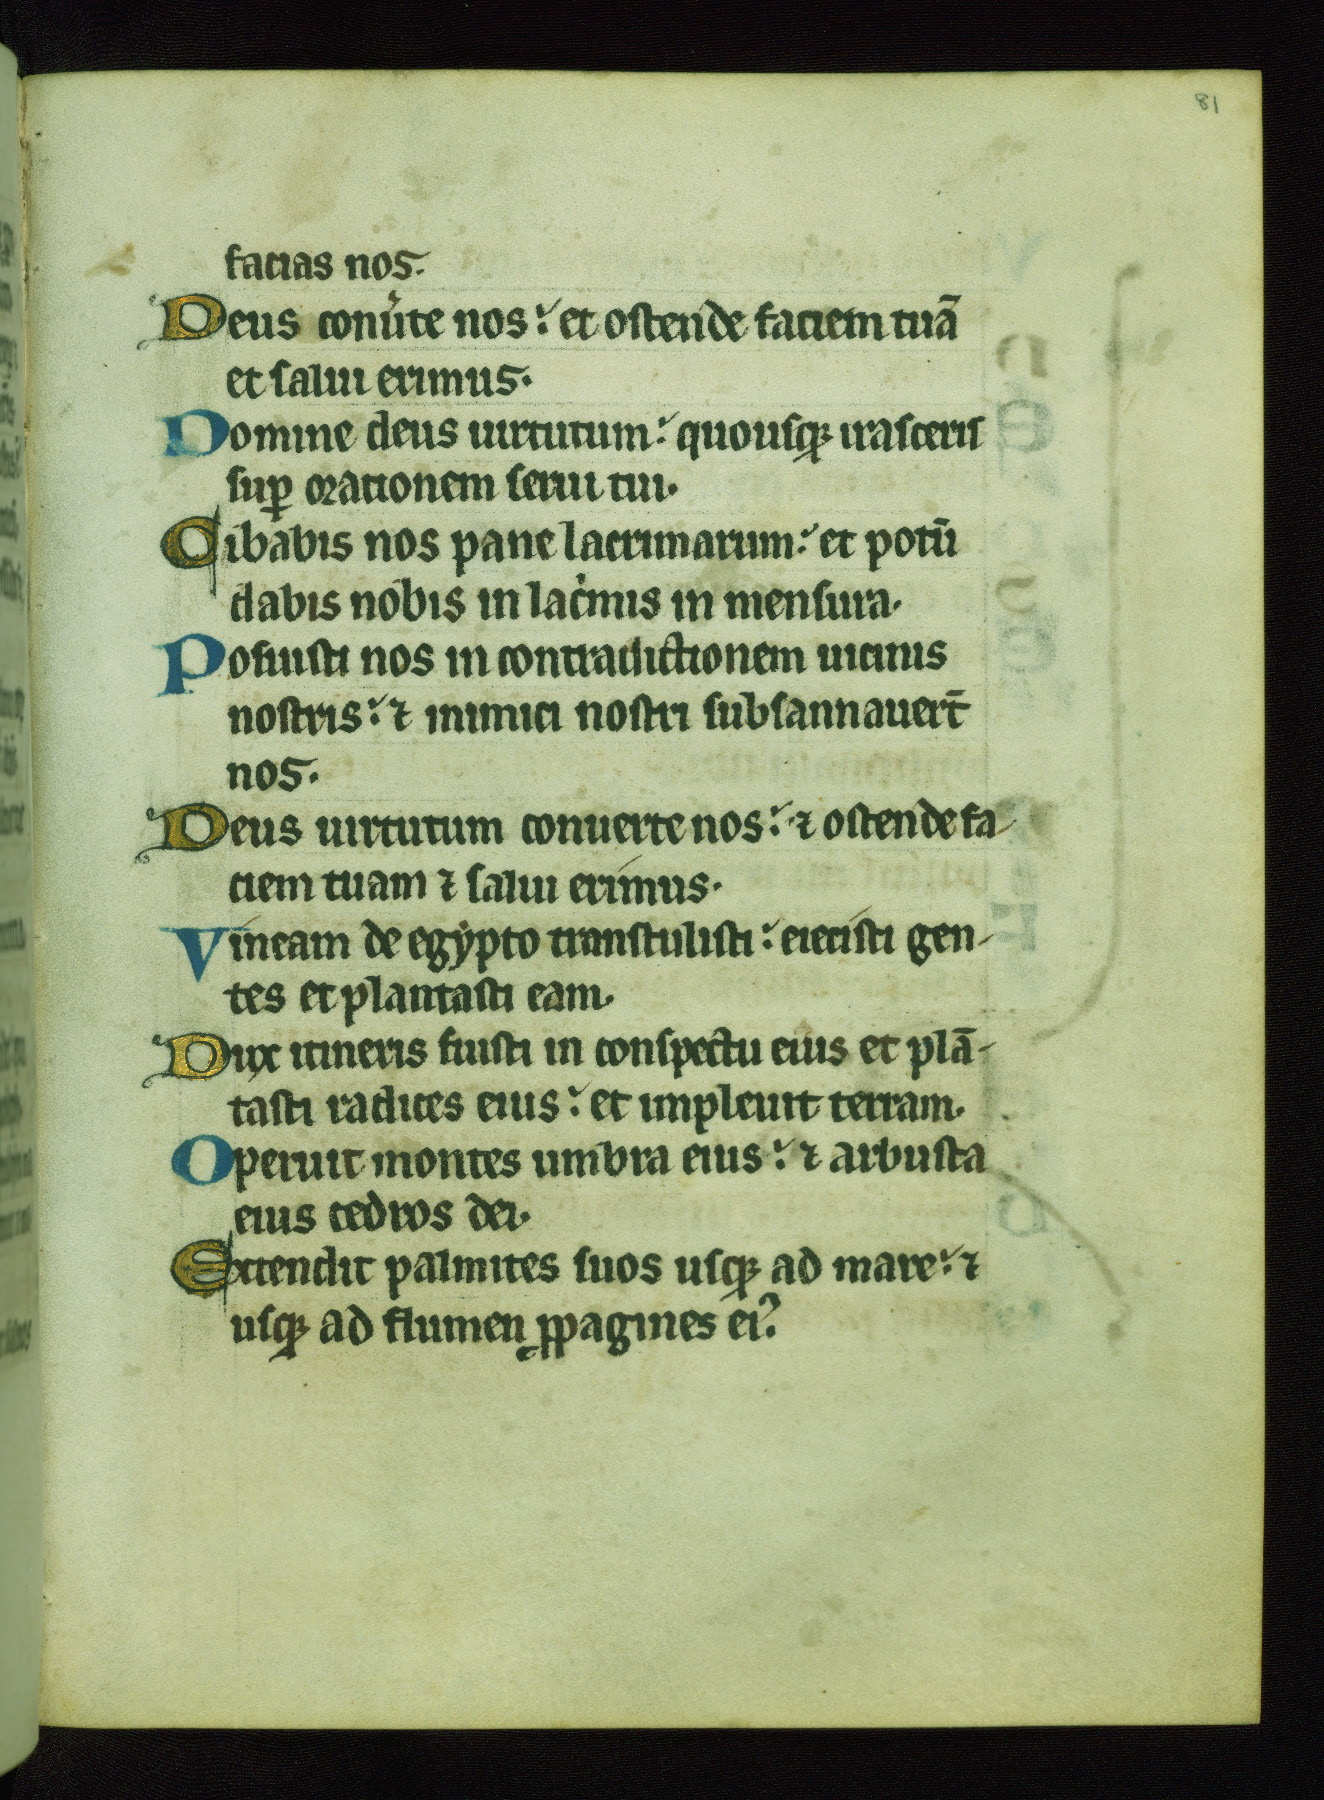 81
facias nos.
Deus conu͛te nos: et ostende faciem tuā
et salui erimus.
Domine deus uirtutum: quousqꝫ irasceris
suꝑ orationem serui tui.
Cibabis nos pane lacrimarum: et potū
dabis nobis in lacͥmis in mensura.
Posuisti nos in contradictionem uicinis
nostris: ⁊ inimici nostri subsannauer̄t
nos.
Deus uirtutum conuerte nos: ⁊ ostende fa-
ciem tuam ⁊ salui erimus.
Vineam de egẏpto transtulisti: eiecisti gen-
tes et plantasti eam.
Dux itineris fuisti in conspectu eius et plā-
tasti radices eius: et impleuit terram.
Operuit montes umbra eius: ⁊ arbusta
eius cedros dei.
Extendit palmites suos usqꝫ ad mare: ⁊
usqꝫ ad flumen ꝓpagines eiꝰ.